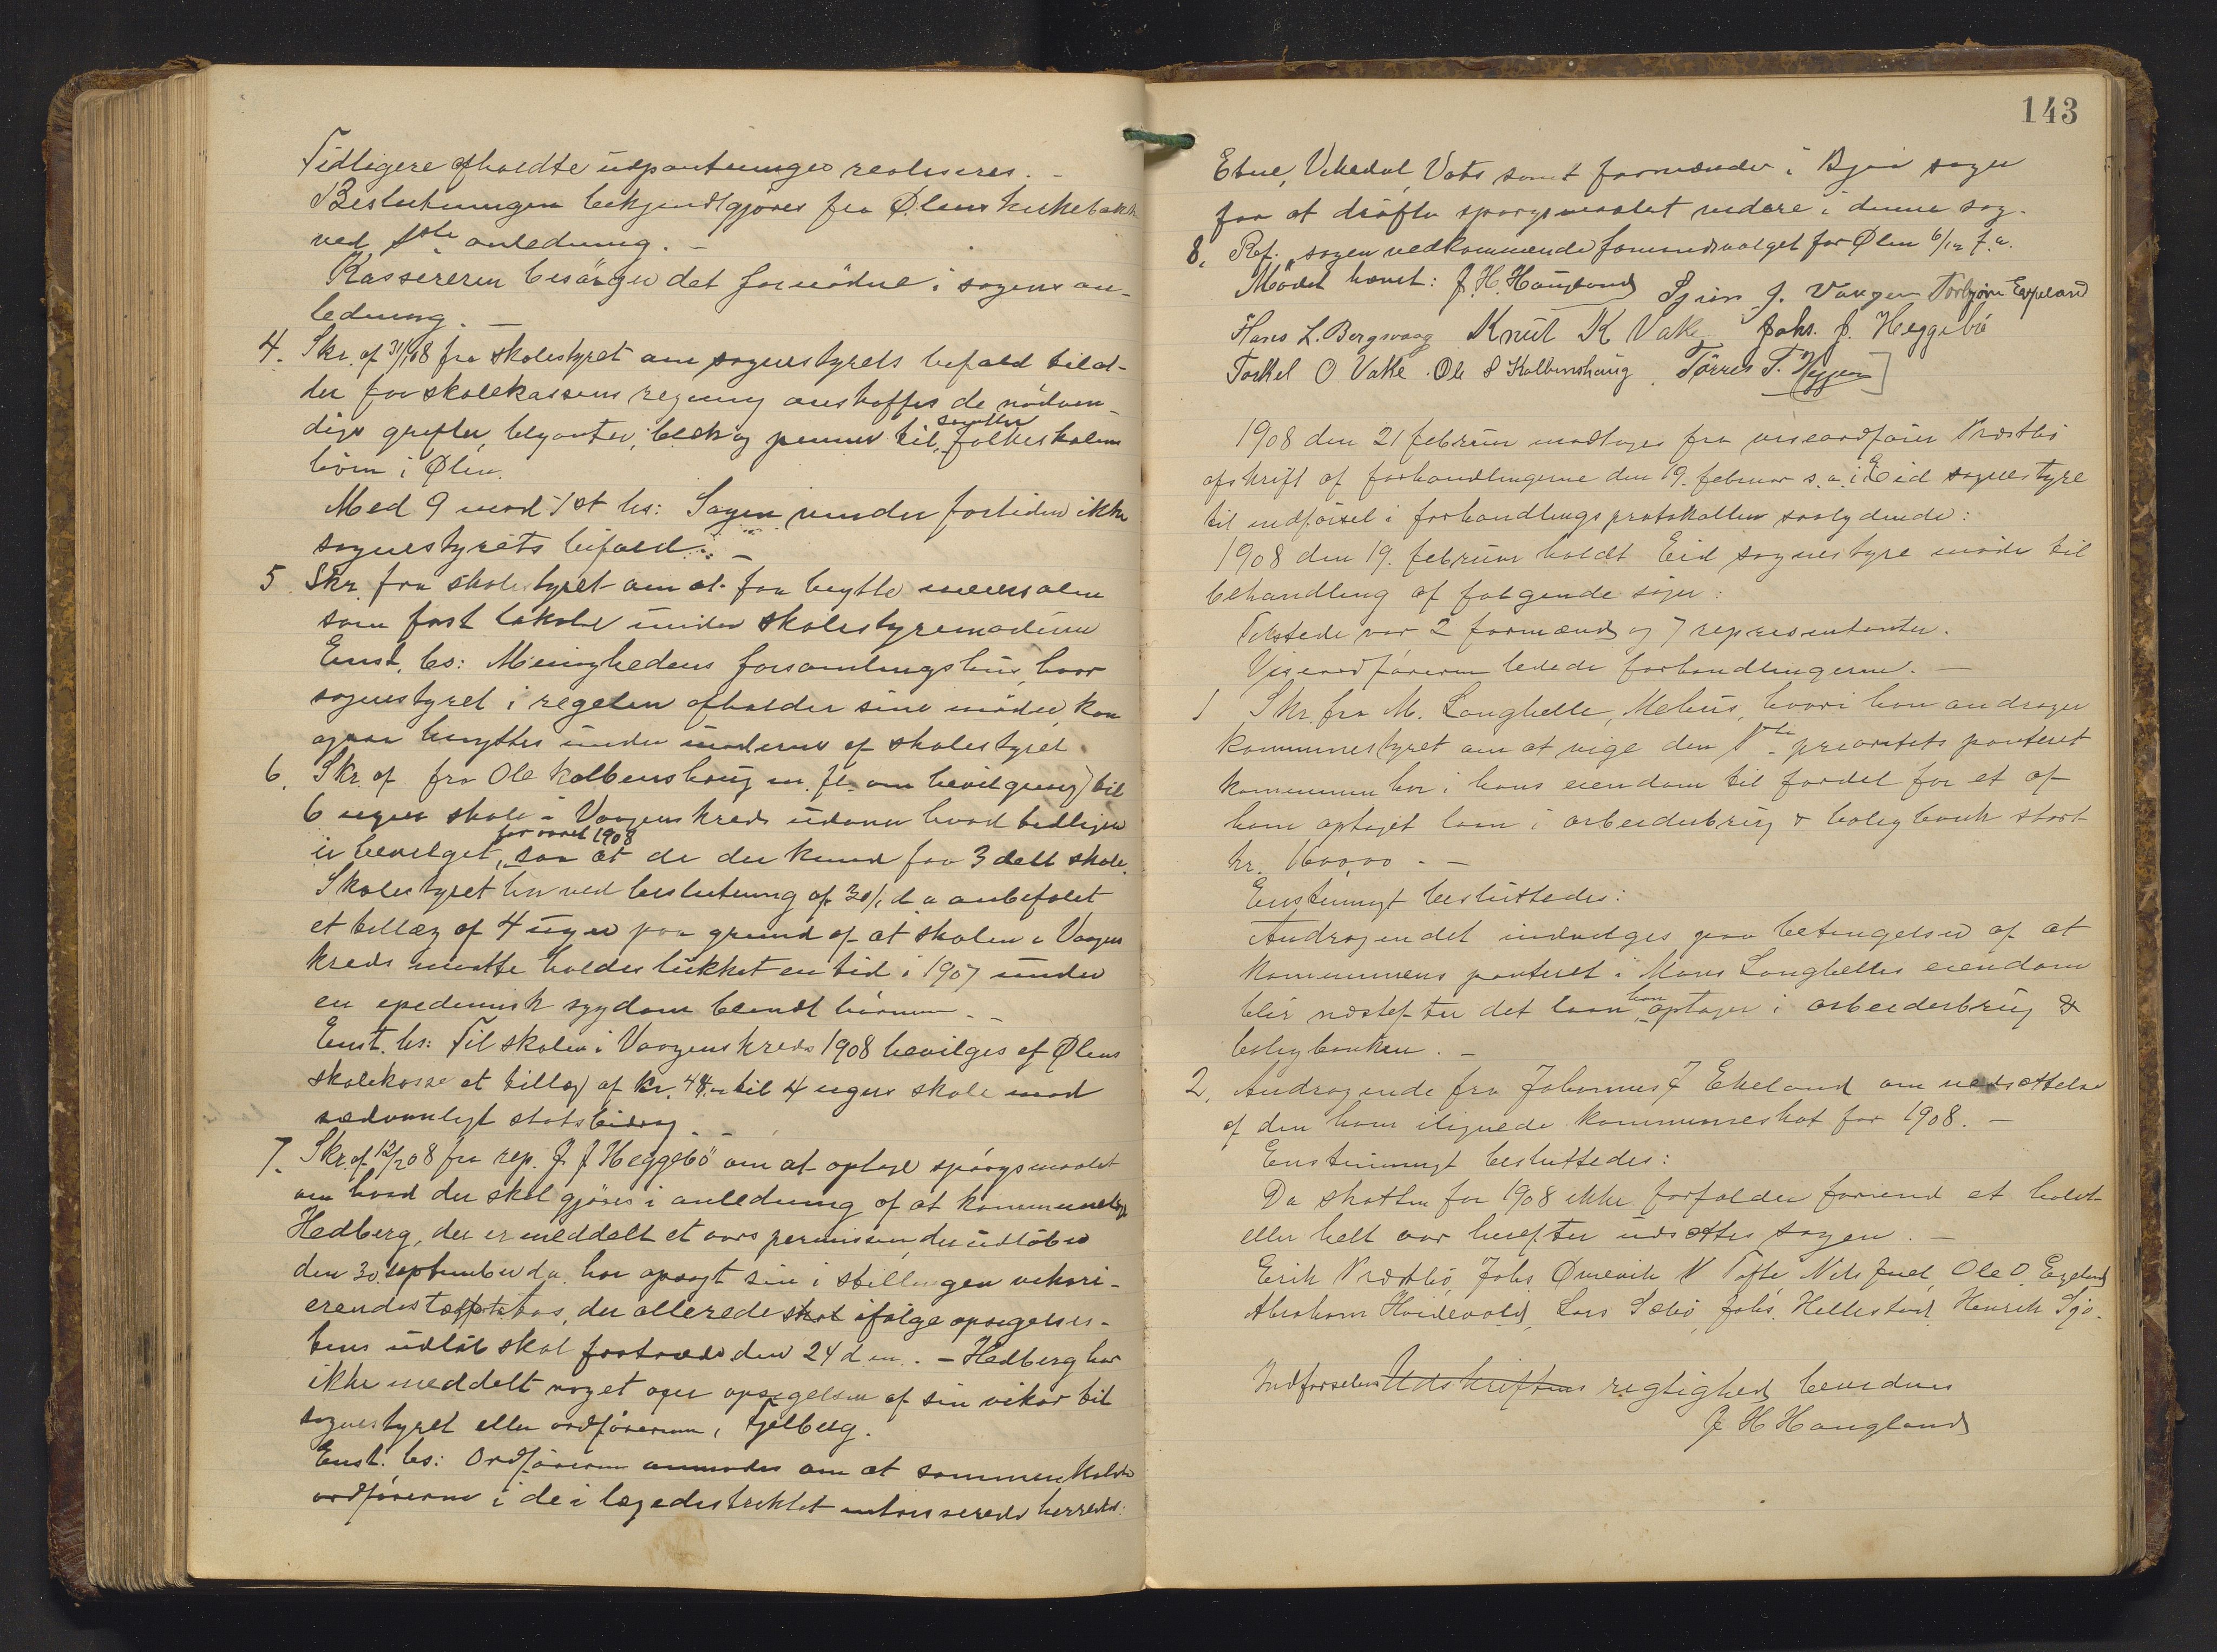 Tidligere afholdte udpantninger realiseres. -
Beslutningen bekjendtgjøres fra Ølens kirkebakke
ved 1ste anledning. -
Kassereren besörger det fornödne i sagens an-
ledning. -
4. Skr. af 31/1 08 fra skolestyret om sognestyrets bifald til at
der for skolekassens regning anskaffes de nödven-
dige grifler, blyanter, blæk og penner til samtlige folkeskolens
börn i Ølen.
Med 9 mod 1 st bs: Sagen vinder fortiden ikke
sognestyrets bifald. -
5. Skr. fra skolestyret om at faa benytte
som fast lokale under skolestyremøderne
Enst. bs: Menighedens forsamlingshus, hvor
sognestyret i regelen afholder sine møder, kan
ogsaa benyttes under møderne af skolestyret.
6. Skr. af fra Ole Kolbenshaug m. fl. om bevilgning til
6 ugers skole i Vaagens kreds udover hvad tidligere
er bevilget for aaret 1908, saa at de der kunde faa 3 delt skole.
Skolestyret har ved beslutning af 30/1 d. a anbefalet
et tillæg af 4 uger paa grund af at skolen i Vaagens
kreds maatte holdes lukket en tid i 1907 under
en epedemisk sygdom blandt börnene. -
Enst. bs: Til skolen i Vaagens kreds 1908 bevilges af Ølens
skolekasse et tillæg af kr. 44.- til 4 ugers skole mod
sædvanligt statsbidrag. -
7. Skr. af 12/2 08 fra rep. J. J. Heggebö om at optage spörgsmaalet
om hvad der skal gjöres i anledning af at kommunelæge
Hedberg, der er meddelt et aars permission, der udlöber
den 30. september d. a. har opsagt sin i stillingen vikari-
erende, der allerede ifölge opsigelses-
tens udlöb skal fratræde den 24 d. m. - Hedberg har
ikke meddelt noget om opsigelsen af sin vikar til
sognestyret eller ordföreren i Fjelberg.
Enst. bs: Ordföreren anmodes om at sammenkalde
ordförerne i de i lægedistriktet interesserede herreder:
143
Etne, Vikedal, Vats samt formænder i Bjoa sogn
for at dröfte spörgsmaalet videre i denne sag.
8. Ref. sagen vedkommende formandsvalget for Ølen 6/12 f. a.
Mödet hævet: J. H. Haugland Sjur J. Vaagen Torbjørn Espeland
Hans L. Bergsvaag Knut K Vake Johs. J. Heggebö
Torkel O Vake. Ole S Kolbenshaug. Tørres T.
1908 den 21 februar modtages fra viseordförer Prestbö
afskrift af forhandlingerne den 19. februar s. a. i Eid sognestyre
til indförsel i forhandlingsprotokollen saalydende:
1908 den 19. februar holdt Eid sognestyre möde til
behandling af fölgende sager:
Tilstede var 2 formænd og 7 representanter.
Viseordföreren ledede forhandlingerne. -
1 Skr. fra M. Langhelle, Mehus, hvori han andrager
kommunestyret om at vige den 1ste prioritets panteret
kommunen har i hans eiendom til fordel for et af
ham optaget laan i arbeiderbrug & boligbank stort
kr. 1600,00. -
Enstemmigt besluttedes:
Andragendet indvilges paa betingelse af at
kommunens panteret i Mons Langhelles eiendom
blir næstefter det laan han optager i arbeiderbrug &
boligbanken. -
2. Andragende fra Johannes J Ekeland om nedsættelse
af den ham ilignede kommuneskat for 1908. -
Enstemmigt besluttedes:
Da skatten for 1908 ikke forfalder förend et halvt
eller helt aar herefter udsættes sagen. -
Erik Prestbö, Johs Ømevik N Tofte Nils Juel, Ole O. Egeland
Abraham Hvidevold, Lars Sæbö, Johs. Hellestad, Henrik Sjö.
Indförselens Udskriftens rigtighed bevidnes
J H Haugland